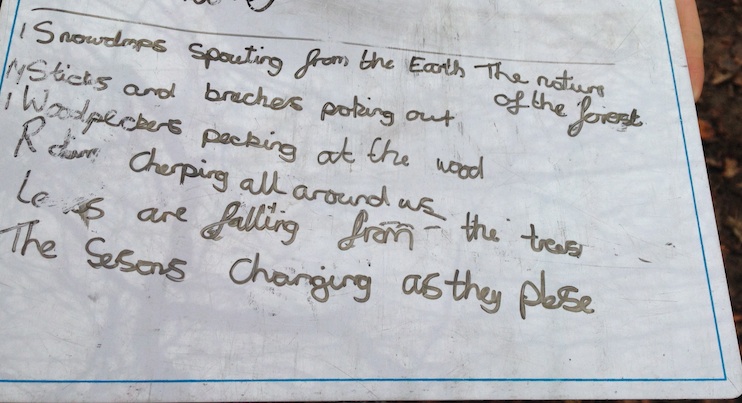 Snowdrops spouting from the Earth The nature
of the forest
Sticks and braches poking out
Woodpeckers pecking at the wood
Robin cherping all around us
are falling from the trees
The Sesons changing as they plese